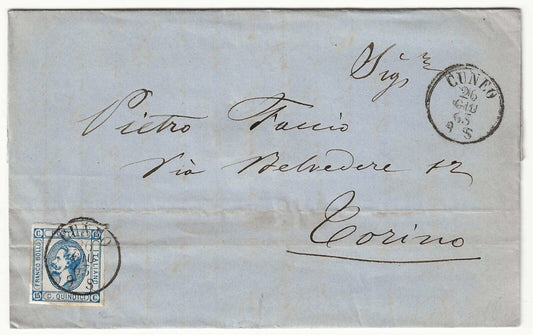 Sig.r
CUNEO
26
GIU
65
9 S
Pietro Faccio
Via Belvedere 12
Torino
CUNEO
FRANCO BOLLO
C. QUINDICI
ITALIANO
15
C